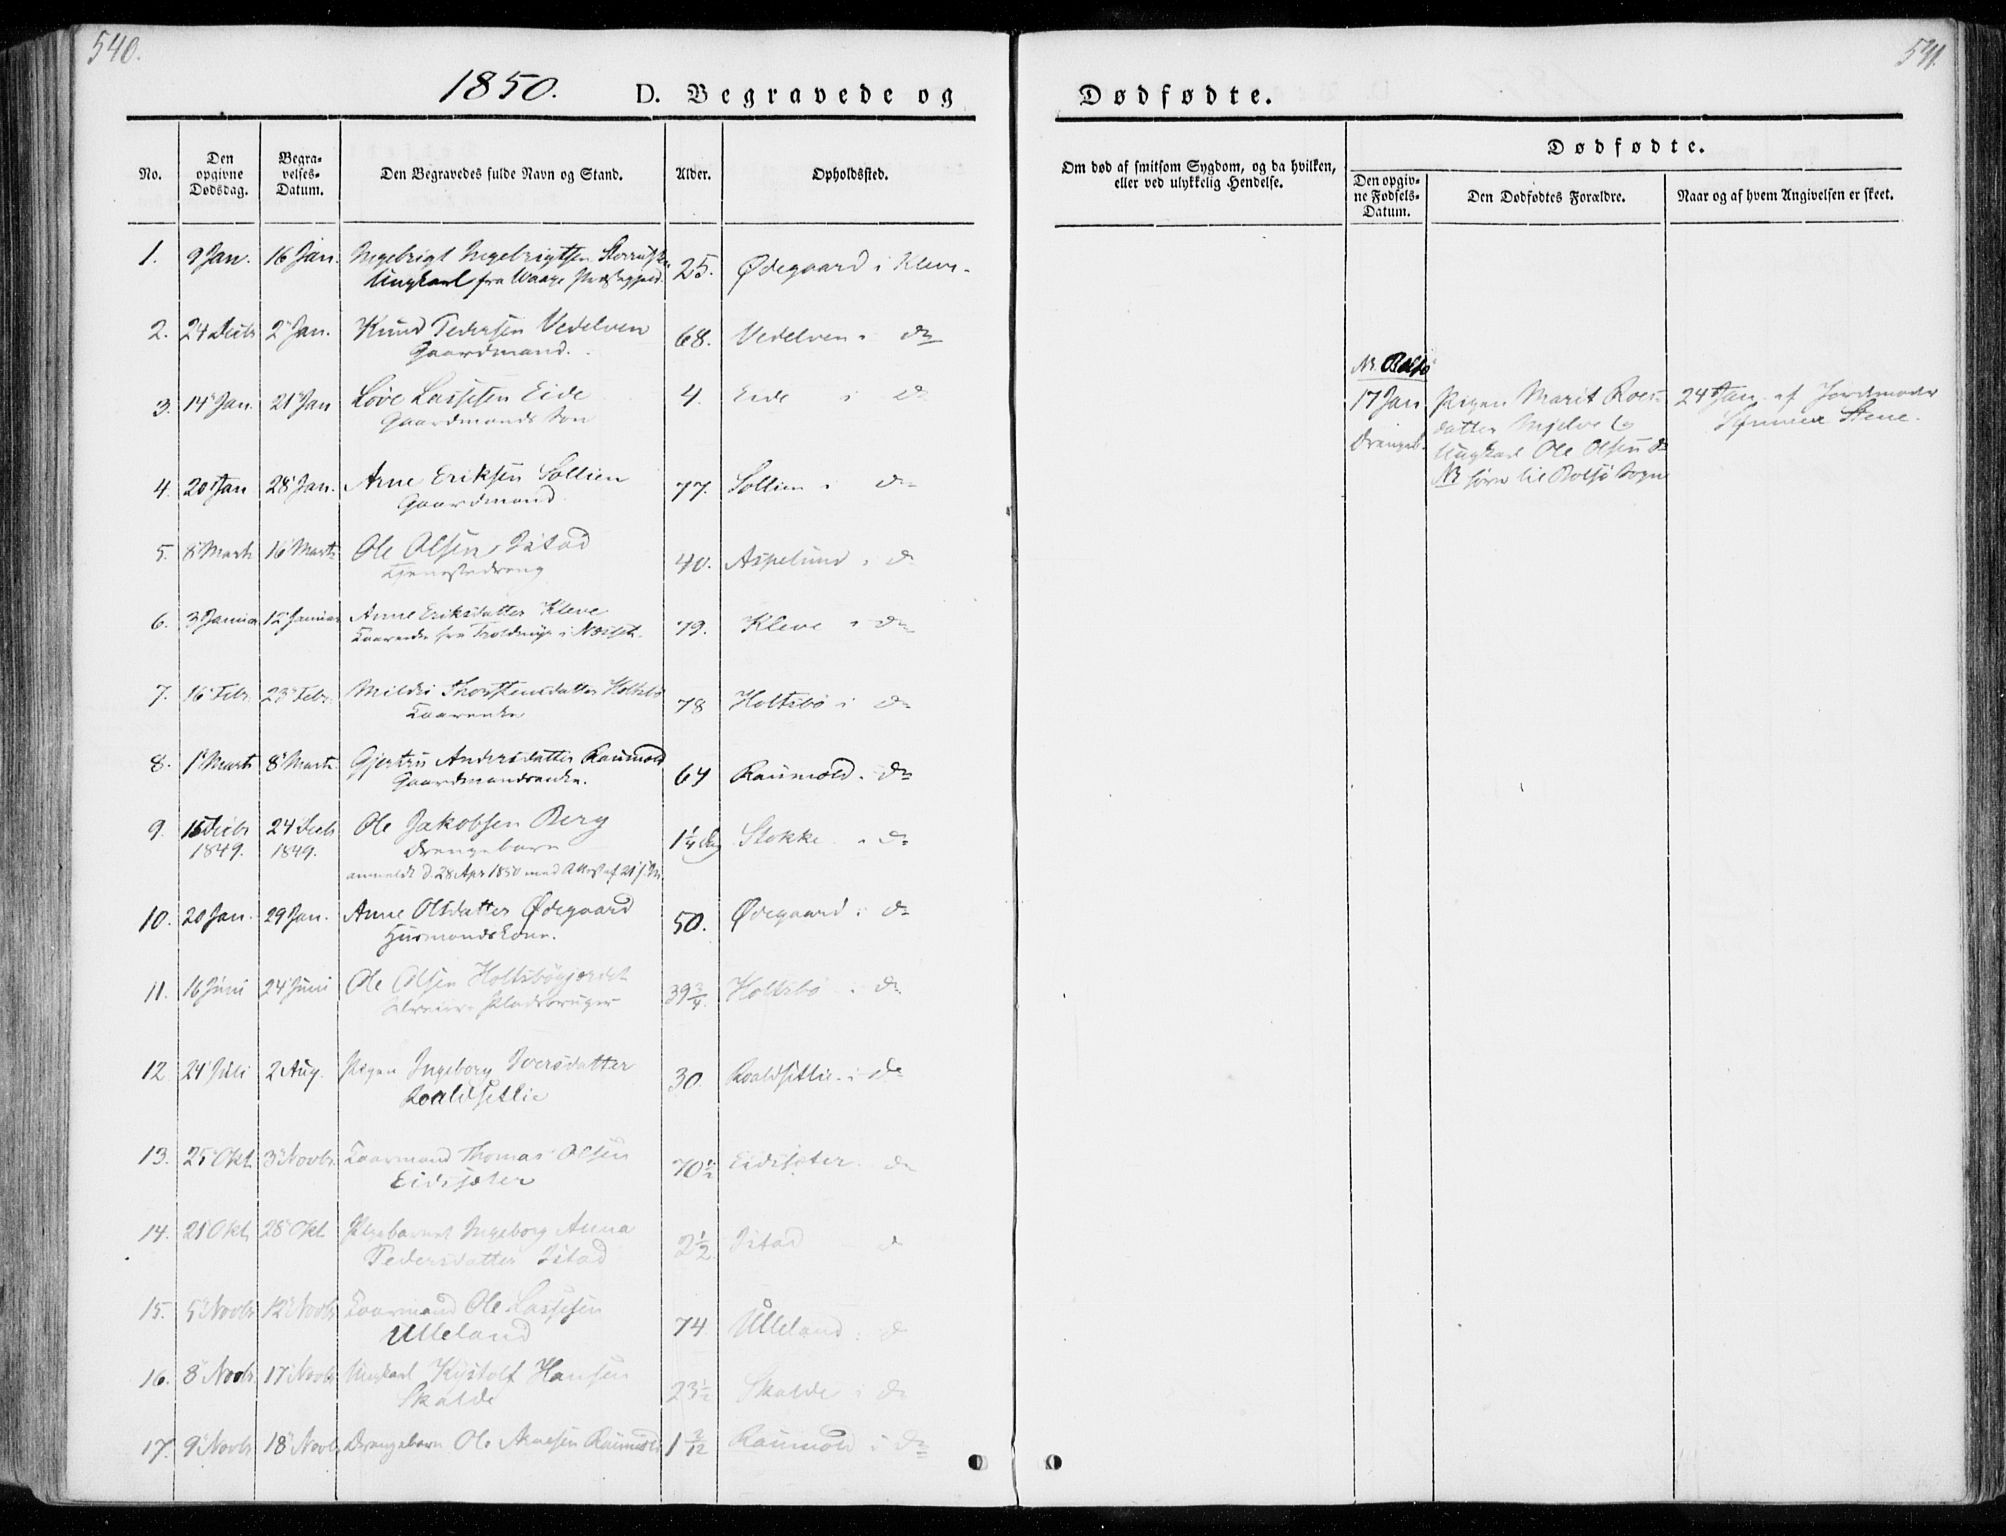 540.
1850.
D. Begravede og
No.
Den opgivne Dødsdag.
Begravelses-Datum.
Den Begravedes fulde Navn og Stand.
Alder.
Opholdssted.
1. 9 Jan. 16 Jan. Ingebrigt Ingebrigtsen 25. Ødegaard i Kleve.
Ungkarl fra Waage
2. 24 Decbr 2 Jan. Knud Pedersen Vedelven 68. Vedelven i do
Gaardmand.
3. 14 Jan. 21 Jan Løve Lassesen Eide 4. Eide i do
Gaardmands Søn
4. 20 Jan 28 Jan. Arne Eriksen Sollien 77. Sollien i do
Gaardmand
5. 8 Marts 16 Marts Ole Olsen Istad 40. Aspelund i do
Tjenestedreng
6. 3 Januar 12 Januar Anne Eriksdatter Kleve 79. Kleve i do
Kaarenke fra i Nesset.
7. 16 Febr. 23 Febr. Mildri Thorstensdatter Holtsbø 78 Holtsbø i do
Kaarenke
8. 1 Marts 8 Marts Gjertru Andersdatter Raumold 64 Raumold i do
Gaardmandsenke.
9. 15 Decbr 24 Decbr Ole Jakobsen Berg 1 1/4 Dag Stokke i do
1849. 1849. Drengebarn
anmeldt d. 28 Apr 1850 med Attest af
10. 20 Jan. 29 Jan. Anne Olsdatter Ødegaard 50. Ødegaard i do
Husmandskone.
11. 16 Juni 24 Juni Ole Olsen Holtsbøgjerdet 39 3/4. Holtsbø i do
Pladsbruger
12 24 Juli 2 Aug. Pigen Ingeborg Iversdatter 30. Roaldsetlie i do
Roaldsetlie
13. 25 Okt. 3 Novbr. Kaarmand Thomas Olsen 70 1/2 Eidsæter do
Eidsæter
14. 21 Okt. 28 Okt Pigebarnet Ingeborg Anna 2 1/2 Istad d
Pedersdatter Istad
15. 5 Novbr 12 Novbr Kaarmand Ole Lassesen 74. Ulleland i do
Ulleland
16. 8 Novbr. 17 Novbr Ungkarl Kristoff Hansen 23 1/2 Skalde i do
Skalde
17. 9 Novbr 18 Novbr Drengebarn Ole Arnesen Raumold 1 3/12 Raumold i do
541.
Dødfødte.
Om død af smitsom Sygdom, og da hvilken,
eller ved ulykkelig Hendelse.
Dødfødte.
Den opgivne Fødsels-Datum.
Den Dødfødtes Forældre.
Naar og af hvem Angivelsen er skeet.
Nb. Bolsø
17 Jan. Pigen Marit Roes- 24 Jan. af Jordmoder
datter Mjelve og Stene.
Drengeb. Ungkarl Ole Olsen do
Nb hører til Bolsø Sogn